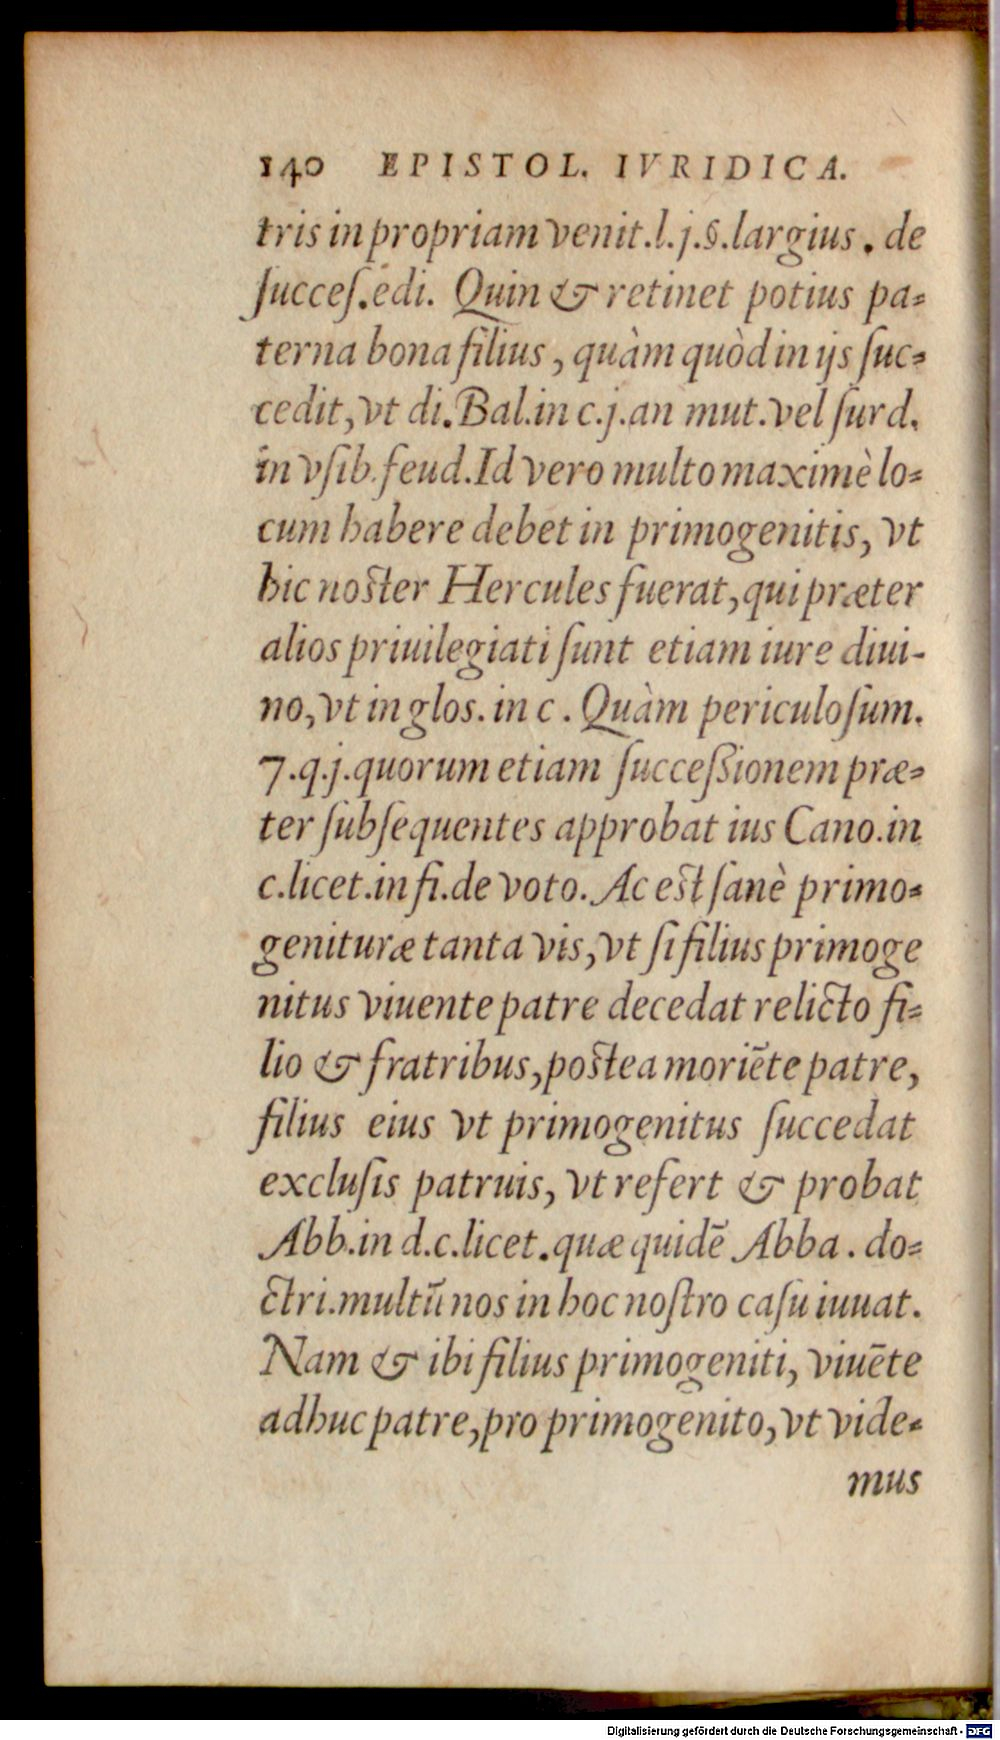 140 EPISTOL. IVRIDICA.
tris in propriam venit.l.j.§.largius. de
succeſ.edi. Quin & retinet potius pa-
terna bona filius, quàm quòd in ijs ſuc-
cedit, vt di.Bal.in c.j.an mut.vel ſurd.
in vſib.feud.Id vero multo maximè lo-
cum habere debet in primogenitis, vt
hic noſter Hercules fuerat, qui præter
alios priuilegiati ſunt etiam iure diui-
no, vt in glos. in c. Quàm periculoſum.
7.q.j.quorum etiam ſucceßionem præ-
ter ſubſequentes approbat ius Cano.in
c.licet.in fi.de voto. Ac eſt ſanè primo-
genituræ tanta vis, vt ſi filius primoge
nitus viuente patre decedat relicto fi-
lio & fratribus, poſtea moriēte patre,
filius eius vt primogenitus ſuccedat
excluſis patruis, vt refert & probat
Abb.in d.c.licet.quæ quidē Abba. do-
ctri.multū nos in hoc noſtro caſu iuuat.
Nam & ibi filius primogeniti, viuēte
adhuc patre, pro primogenito, vt vide-
mus
Digitalisierung gefördert durch die Deutsche Forschungsgemeinschaft - DFG